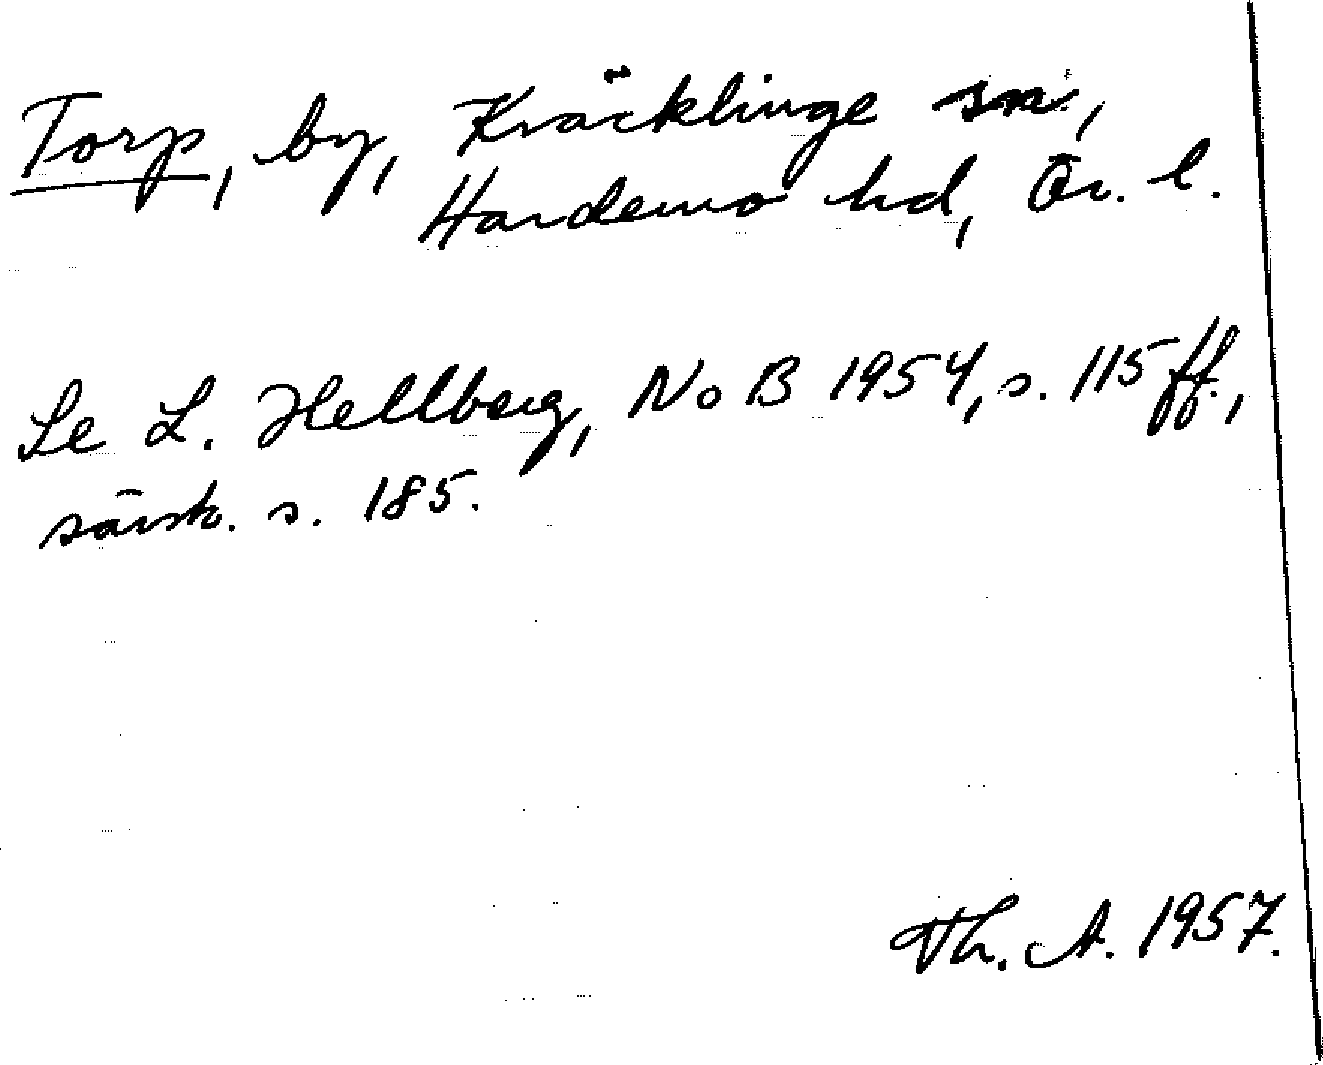 Torp, by, Kräcklinge sn,
Hardemo hd, Ör. l.
Se L. Hellberg, NoB 1954, s. 115 ff.,
särsk. s. 185.
Th. A. 1957.